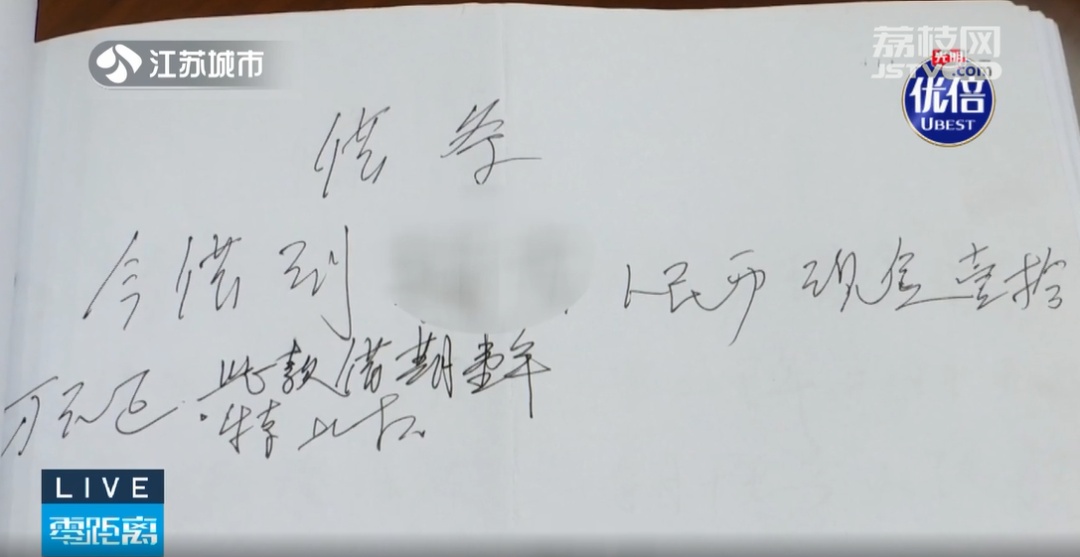 江苏城市
荔枝网
JSTV.com
光明
优倍
UBEST
借条
今借到 人民币现金壹拾
万元正.此款借期壹年
特此据
LIVE
零距离